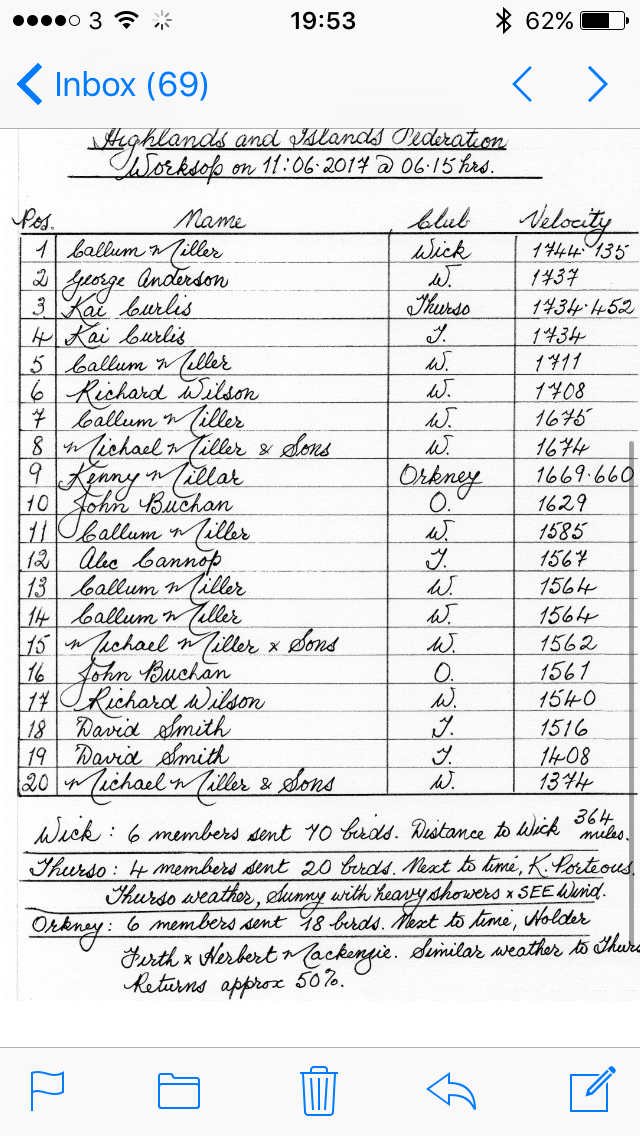 3 19:53 62%
Inbox (69)
Highlands and Islands Federation
Worksop on 11:06·2017 @ 06·15 hrs.
Pos. Name Club Velocity
1 Callum Miller Wick 1744·135
2 George Anderson W. 1737
3 Kai Curlis Thurso 1734·452
4 Kai Curlis T. 1734
5 Callum Miller W. 1711
6 Richard Wilson W. 1708
7 Callum Miller W. 1675
8 Michael Miller & Sons W. 1674
9 Kenny Millar Orkney 1669·660
10 John Buchan O. 1629
11 Callum Miller W. 1585
12 Alec Cannop T. 1567
13 Callum Miller W. 1564
14 Callum Miller W. 1564
15 Michael Miller x Sons W. 1562
16 John Buchan O. 1561
17 Richard Wilson W. 1540
18 David Smith T. 1516
19 David Smith T. 1408
20 Michael Miller & Sons W. 1374
Wick: 6 members sent 70 birds. Distance to Wick 364 miles.
Thurso: 4 members sent 20 birds. Next to time, K. Porteous.
Thurso weather, Sunny with heavy showers x SEE Wind.
Orkney: 6 members sent 18 birds. Next to time, Holder
Firth x Herbert Mackenzie. Similar weather to Thurs
Returns approx 50%.